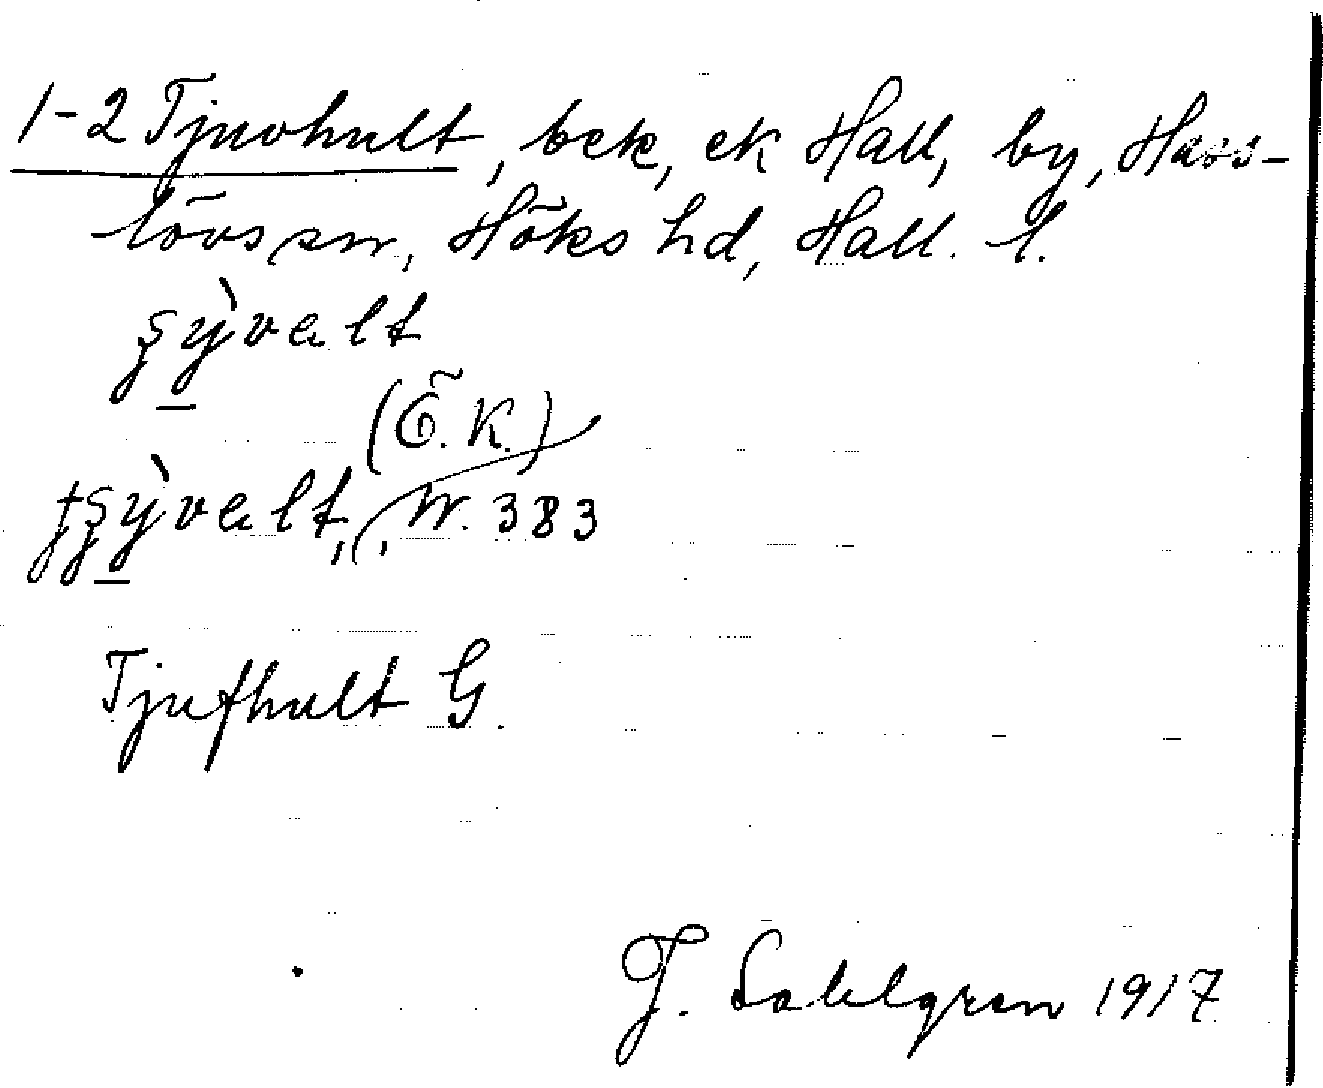 1-2 Tjuvhult, bek, ek Hall, by, Hass-
lövs sn, Höks hd, Hall. l.
(Ö.K.)
W. 383
Tjufhult G.
J. Sahlgren 1917